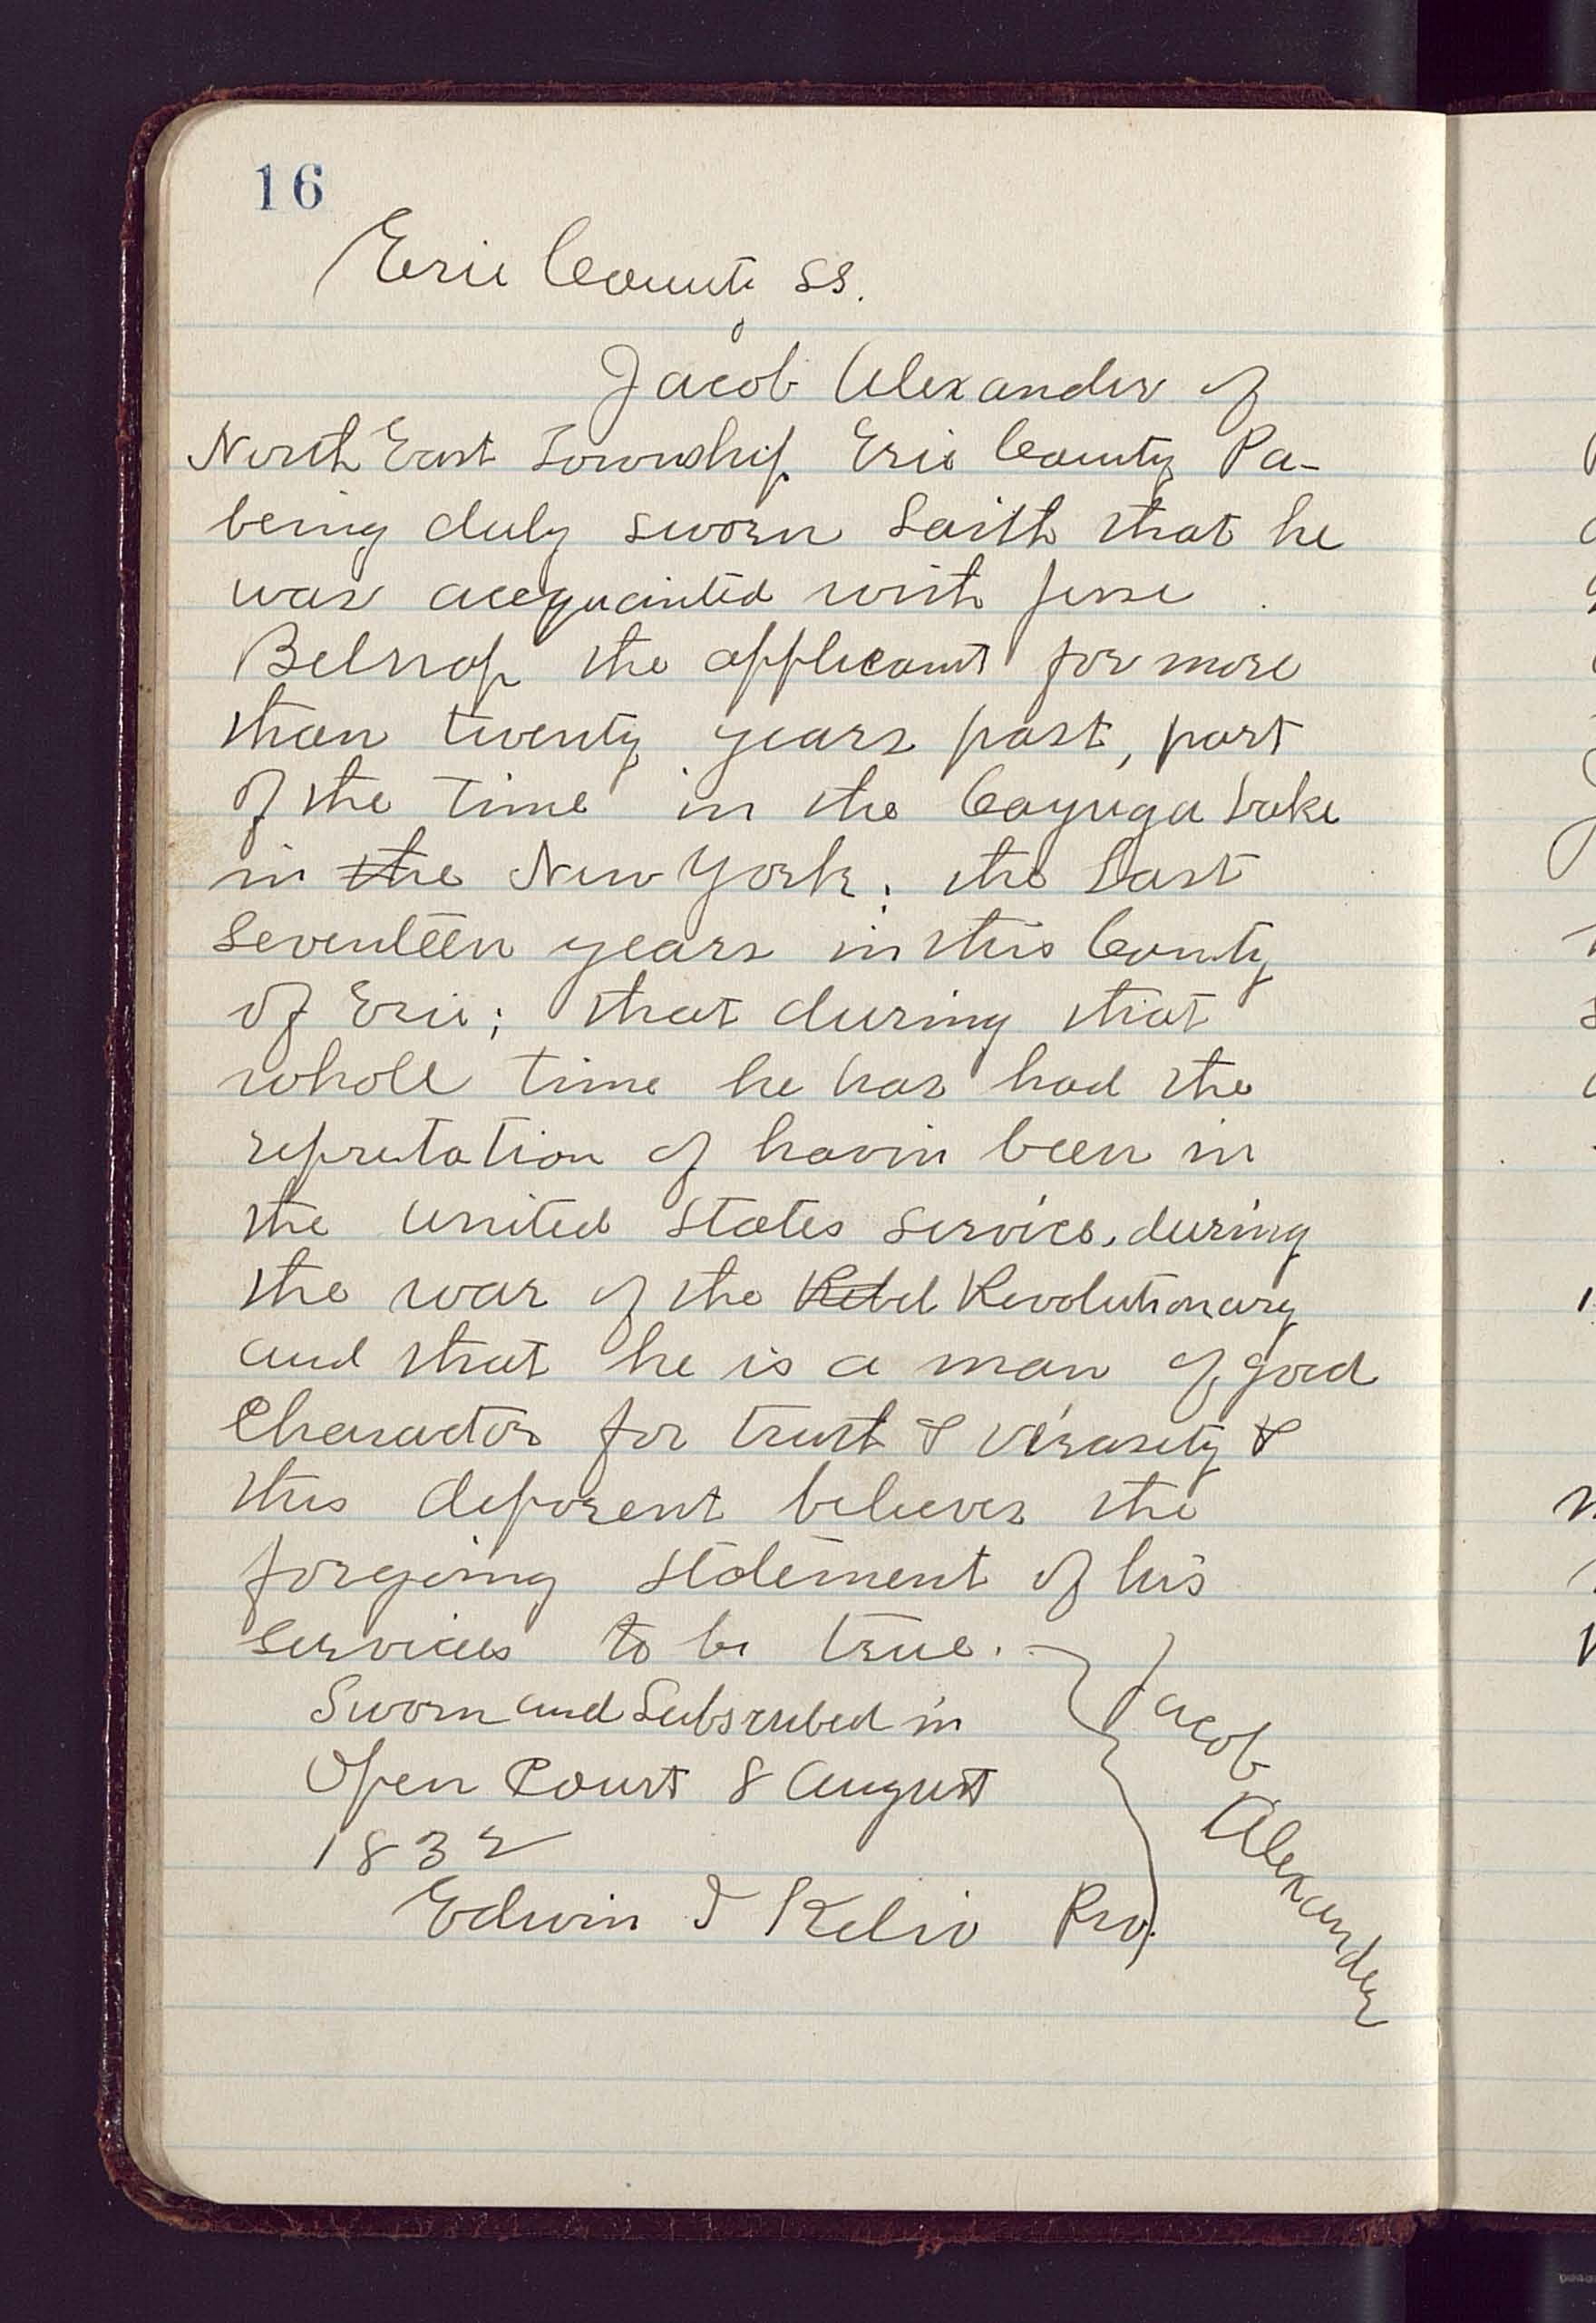 16
Erie County ss.
Jacob Alexander of
North East Township Erie County Pa-
being duly sworn Saith that he
was acequainted with Jesse
Belnap the applicant for more
than twenty years past, part
of the time in the Cayuga Lake
in the New York; the Last
Seventeen years in this County
of Erie; that during that
whole time he has had the
reputation of havin been in
the United States Service, during
the war of the Rebel Revolutionary
and that he is a man of good
Character for trust & verasity &
this deponent believes the
forgoing statement of his
services to be true.
Sworn and Subscribed in
Open Court 8 August
1832
Edwin J Kelso Pro.
Jacob Alexander